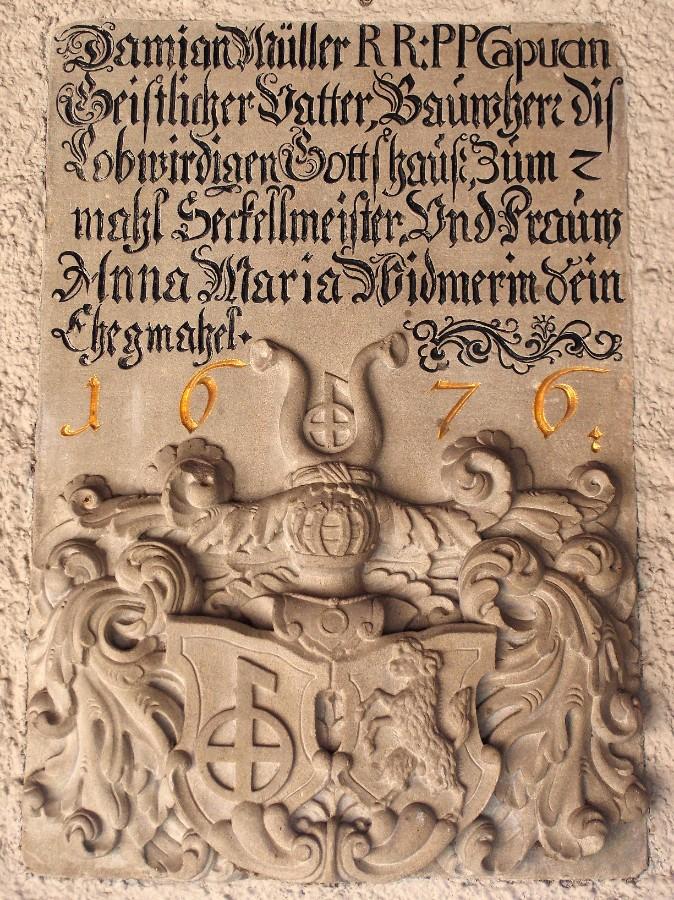 Damian Müller R R: PP Capuan
Geistlicher Vatter, Bauwherr dis
Lobwirdigen Gottshauß, Zum 2
mahl Seckellmeister, Und Frauw
Anna Maria Widmerin Sein
Ehegmahel.
1676